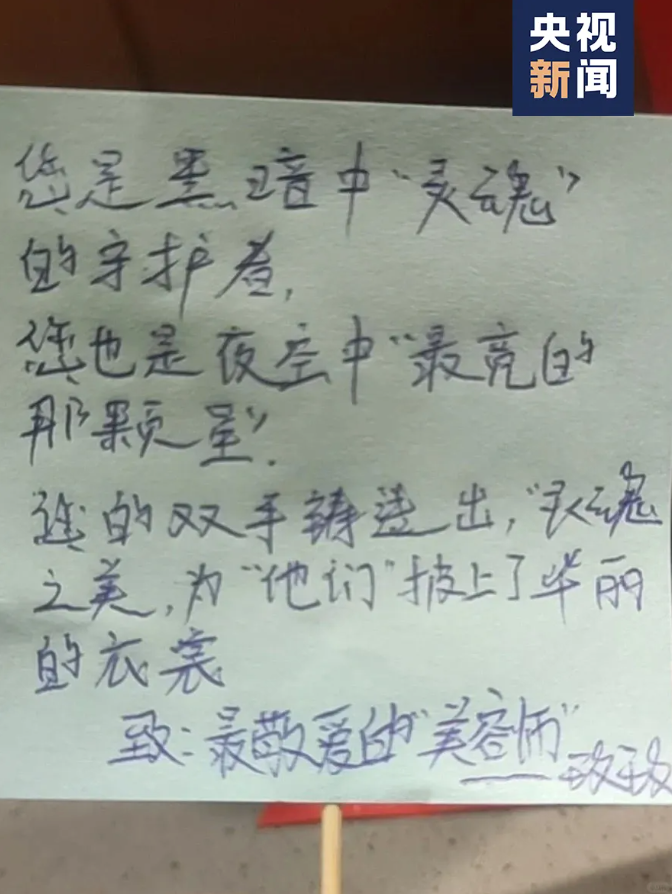 央视
新闻
您是黑暗中“灵魂”
的守护者，
您也是夜空中“最亮的
那颗星”.
您的双手铸造出，“灵魂
之美，为“他们”披上了华丽
的衣裳
致：最敬爱的“美容师”